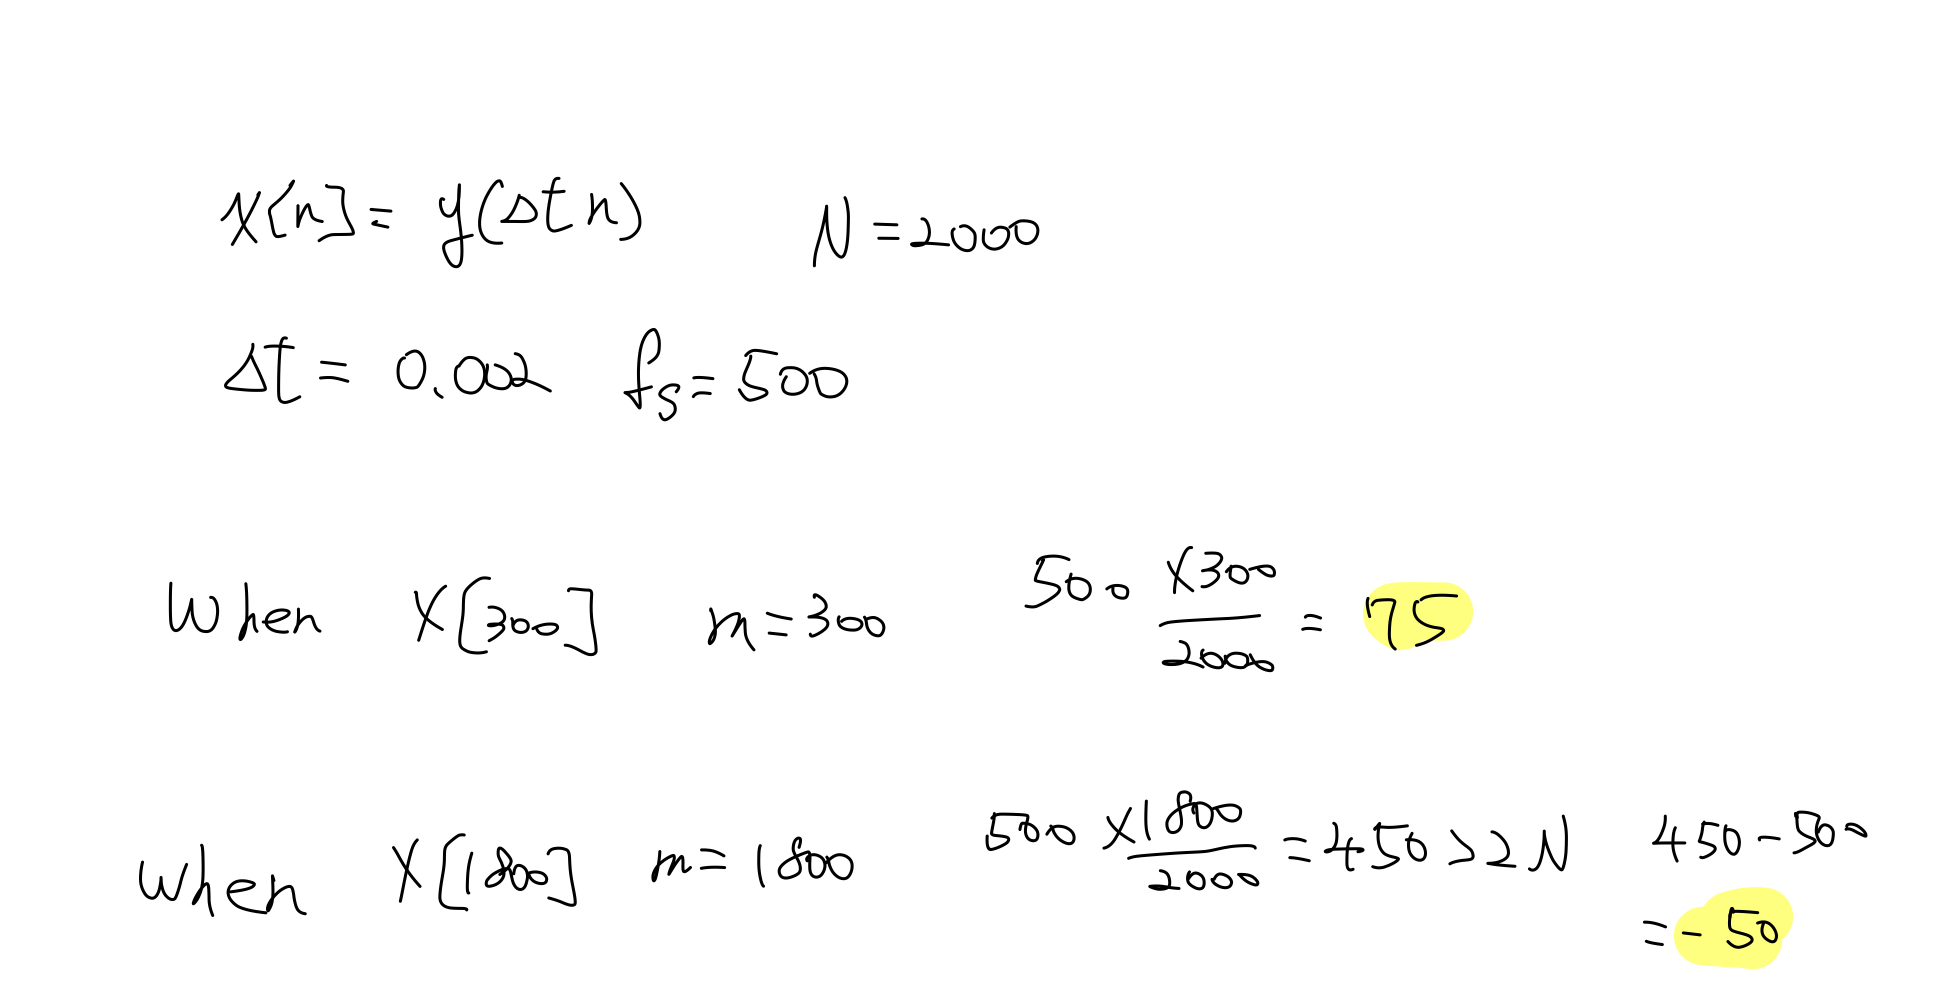 x[n] = y(Δt n) N = 2000
Δt = 0.002 fs = 500
When X[300] m = 300 500 × 300 / 2000 = 75
When X[1800] m = 1800 500 × 1800 / 2000 = 450 > 2N 450 - 500
= - 50